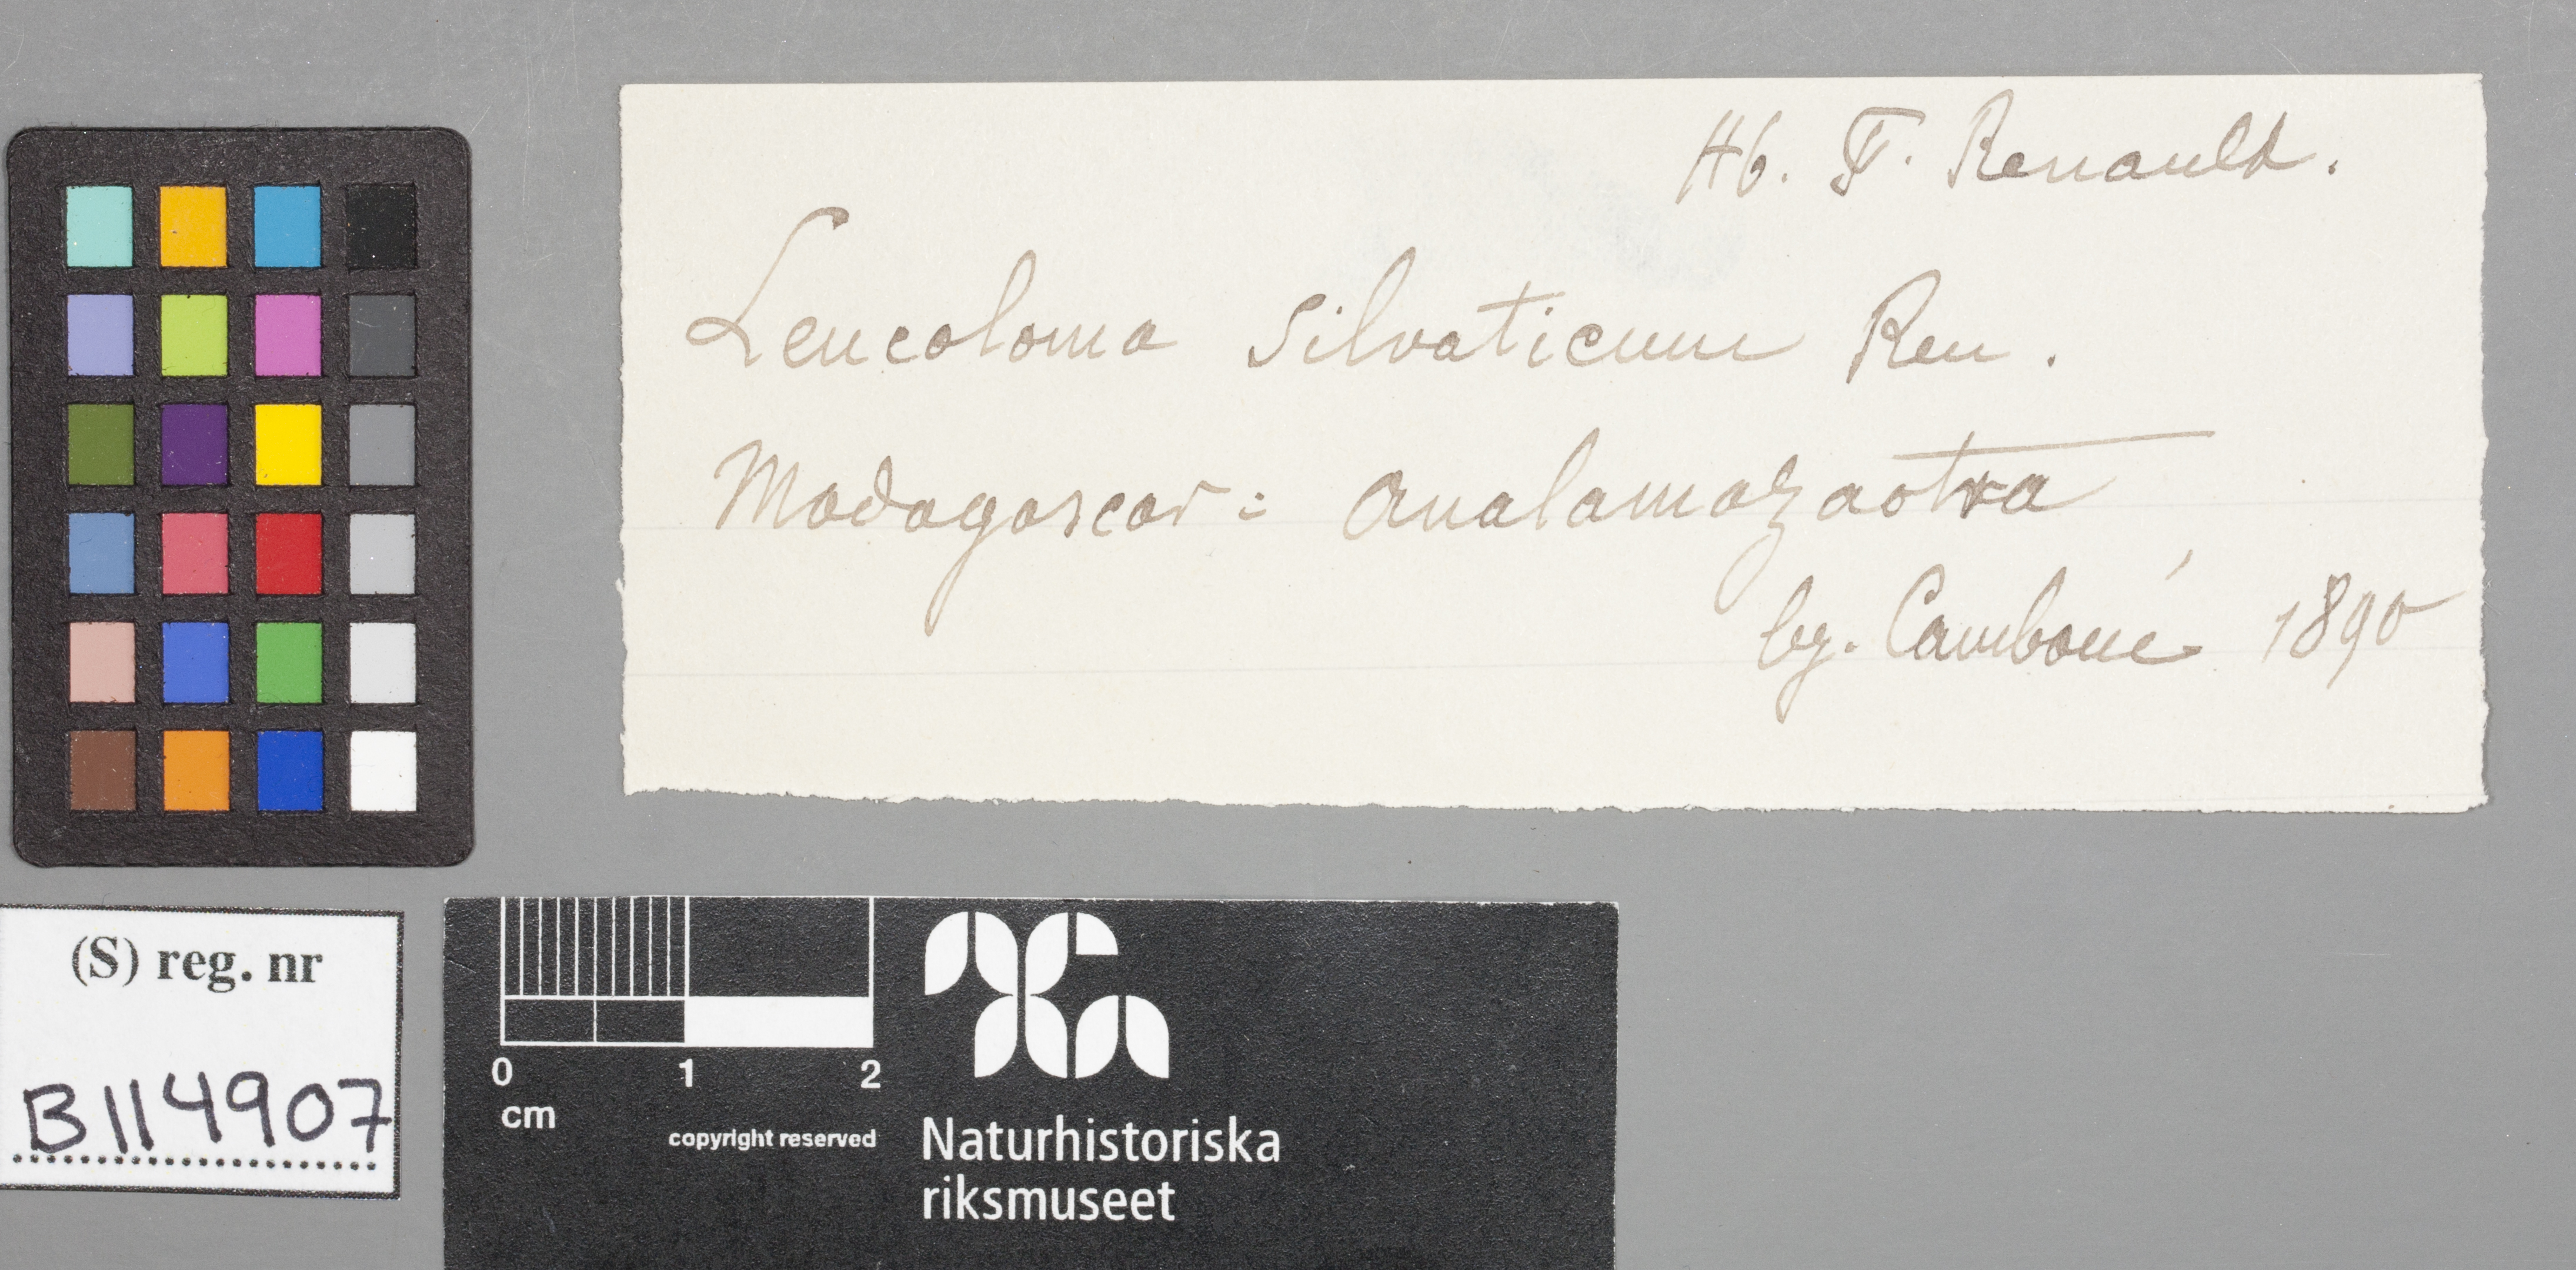 Hb. F. Renauld.
Leucoloma silvaticum Ren.
Madagascar: Analamazaotra
lg. Camboué 1890
(S) reg. nr
B114907
0 1 2
cm
copyright reserved
Naturhistoriska
riksmuseet